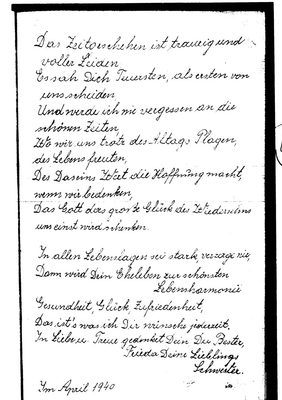 Das Zeitgeschehen ist traurig und
voller Leiden
Es sah Dich Teuersten, als ersten von
uns scheiden
Und werde ich nie vergessen an die
schönen Zeiten,
Wo wir uns trotz des Alltags Plagen,
des Lebens freuten,
Des Daseins Wert die Hoffnung macht,
wenn wir bedenken,
Das Gott ders große Glück des Wiedersehns
uns einst wird schenken.
In allen Lebenslagen sei stark, verzage nie,
Dann wird Dein Eheleben zur schönsten
Lebensharmonie
Gesundheit, Glück, Zufriedenheit,
Das ist's was ich Dir wünsche jederzeit.
In Liebe u Treue gedenket Dein Du Bester,
Frieda Deine Lieblings
Schwester.
Im April 1940